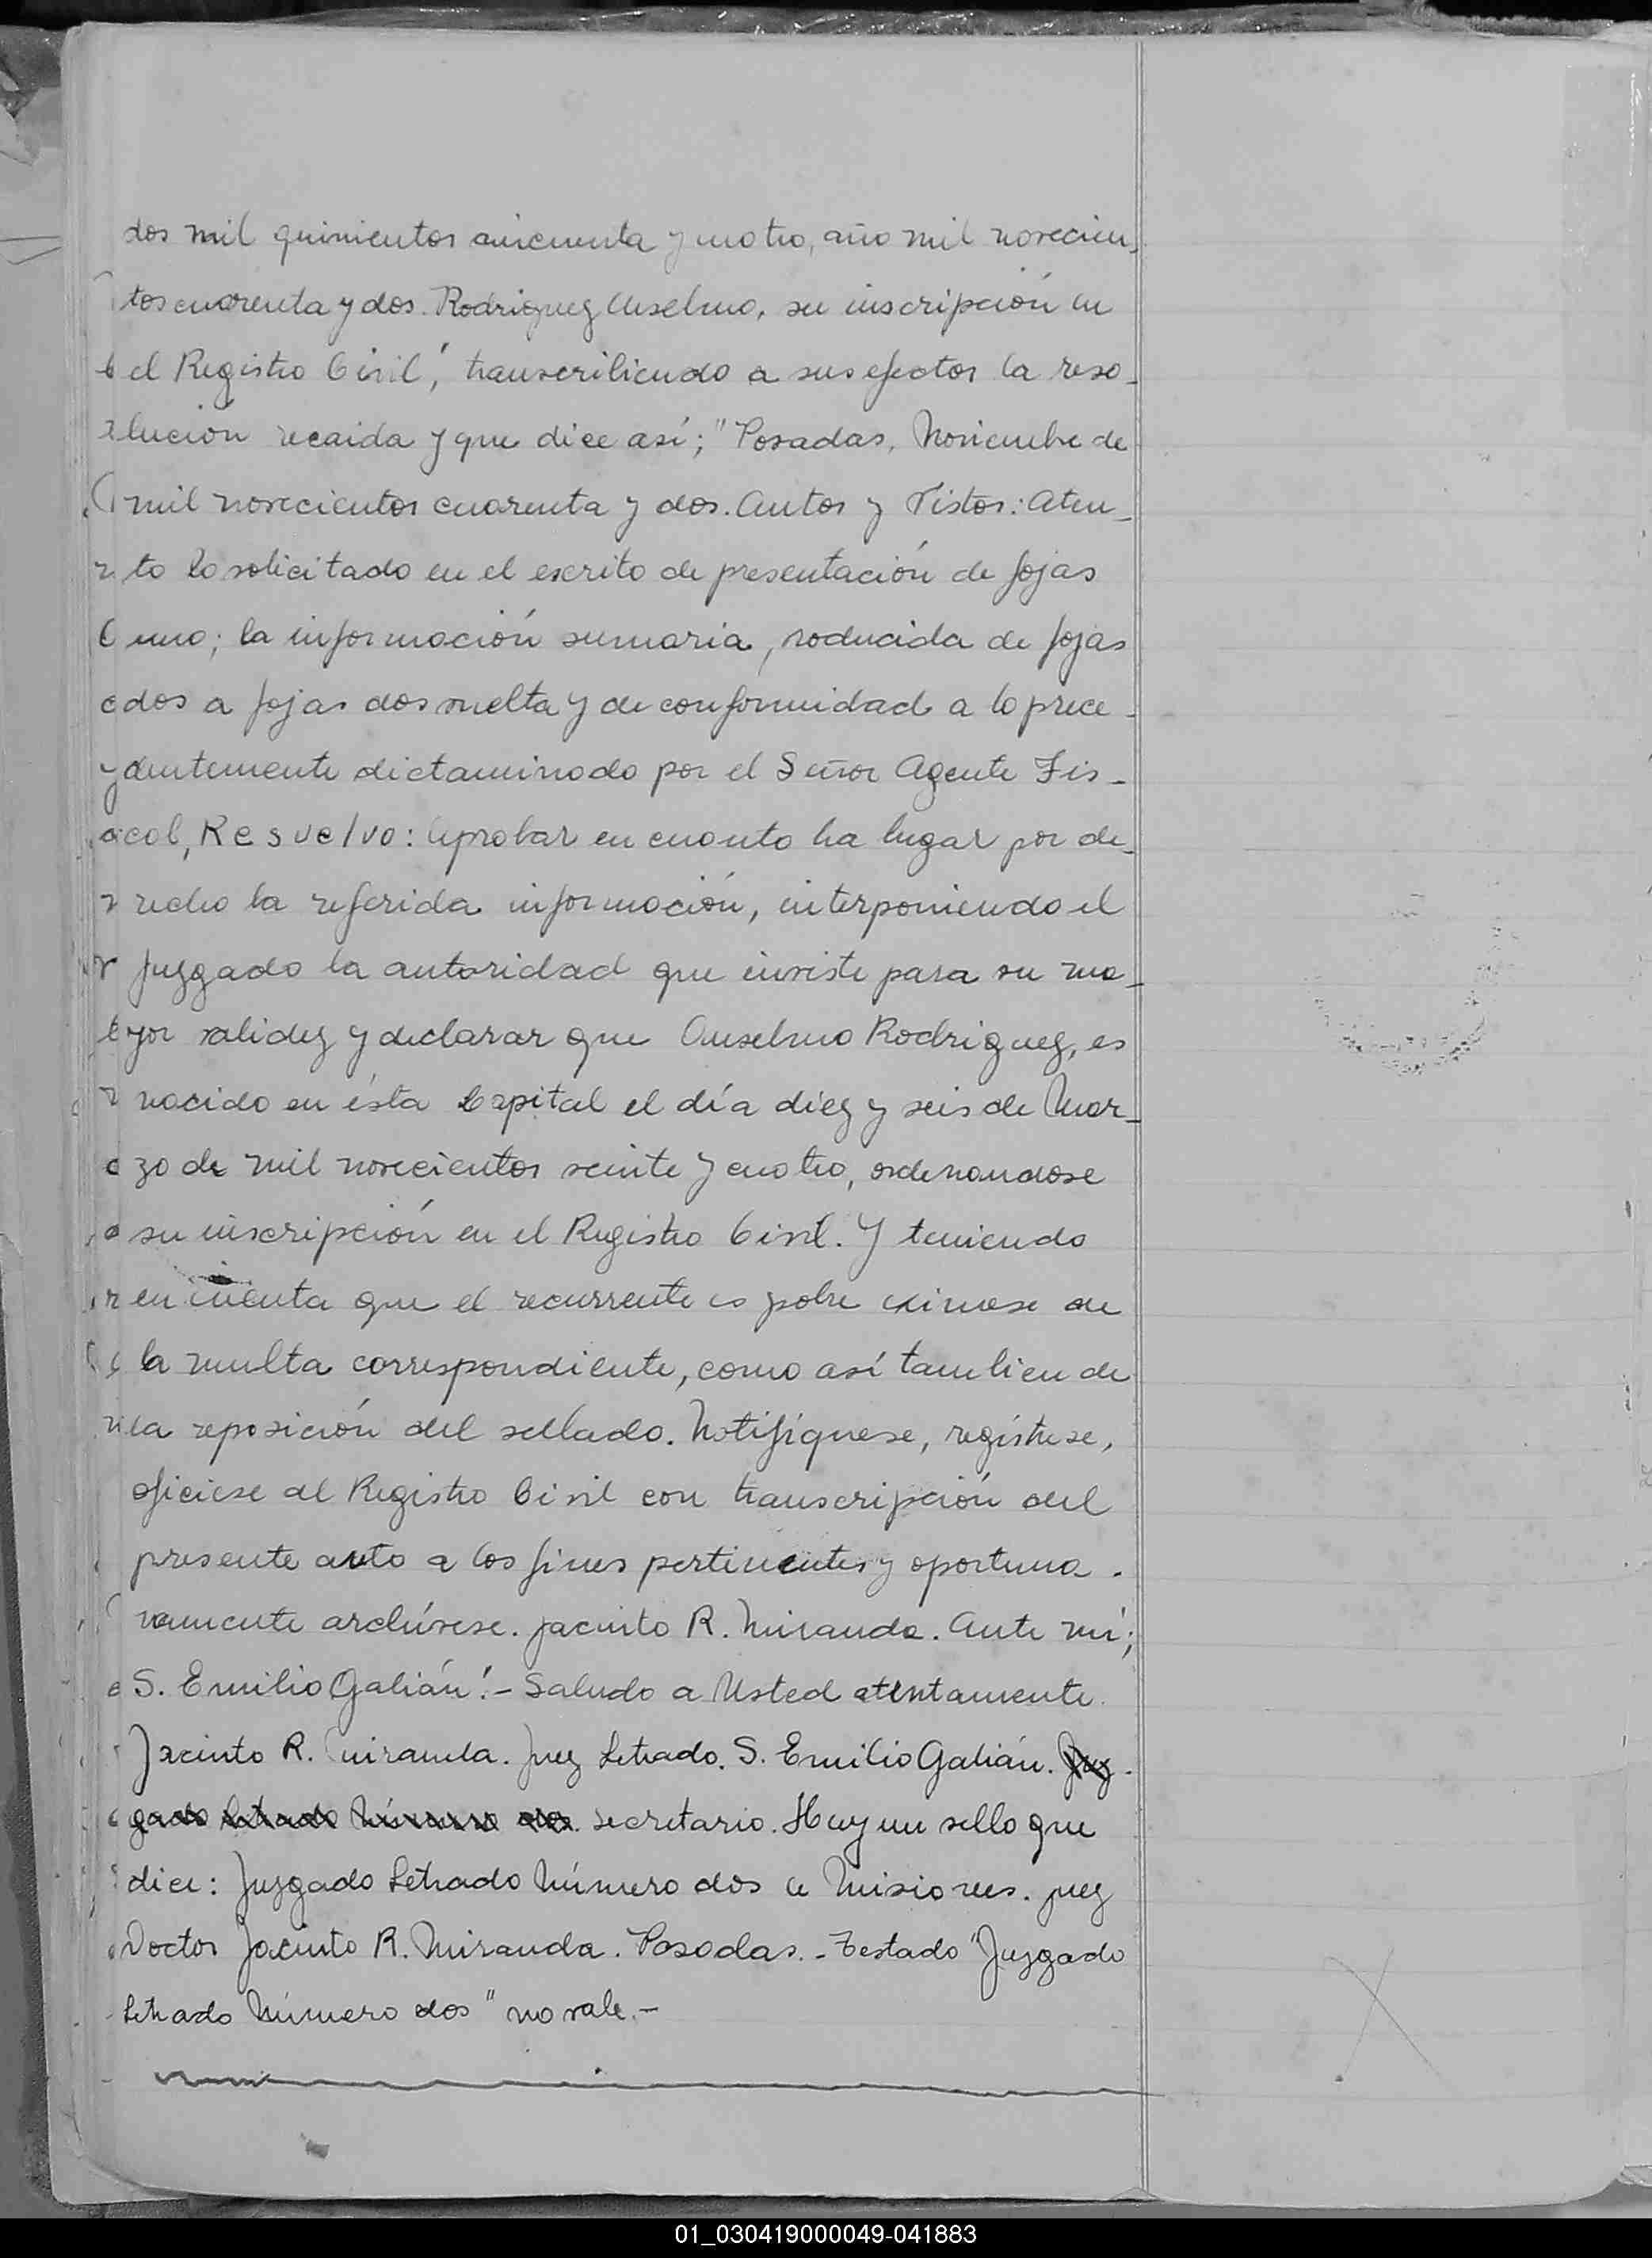 dos mil quinientos cincuenta y cuatro, año mil novecien_
tos cuarenta y dos. Rodriguez Anselmo, su inscripción en
el Registro Civil", transcribiendo a sus efectos la reso_
lución recaida y que dice así; "Posadas, Noviembre de
mil novecientos cuarenta y dos. Autos y Vistos: Aten_
to lo solicitado en el escrito de presentación de fojas
uno; la información sumaria, producida de fojas
dos a fojas dos vuelta y de conformidad a lo prece_
dentemente dictaminado por el Señor Agente Fis_
cal, Resuelvo: Aprobar en cuanto ha lugar por de_
recho la referida información, interponiendo el
Juzgado la autoridad que inviste para su ma_
yor validez y declarar que Anselmo Rodriguez, es
nacido en ésta Capital el día diez y seis de Mar_
zo de mil novecientos veinte y cuatro, ordenandose
su inscripción en el Registro Civil. Y teniendo
en cuenta que el recurrente es pobre eximese de
la multa correspondiente, como así tambien de
la reposición del sellado. Notifíquese, regístrese,
oficiese al Registro Civil con transcripción del
presente auto a los fines pertinentes y oportuna_
mente archívese. Jacinto R. Miranda. Ante mí;
S. Emilio Galián".- Saludo a Usted atentamente.
Jacinto R. Miranda. Juez Letrado. S. Emilio Galián. Juz_
gado Letrado Número dos. secretario. Hay un sello que
dice: Juzgado Letrado Número dos de Misiones. Juez
Doctor Jacinto R. Miranda. Posadas.- Testado "Juzgado
Letrado Número dos" no vale.-
01_030419000049-041883